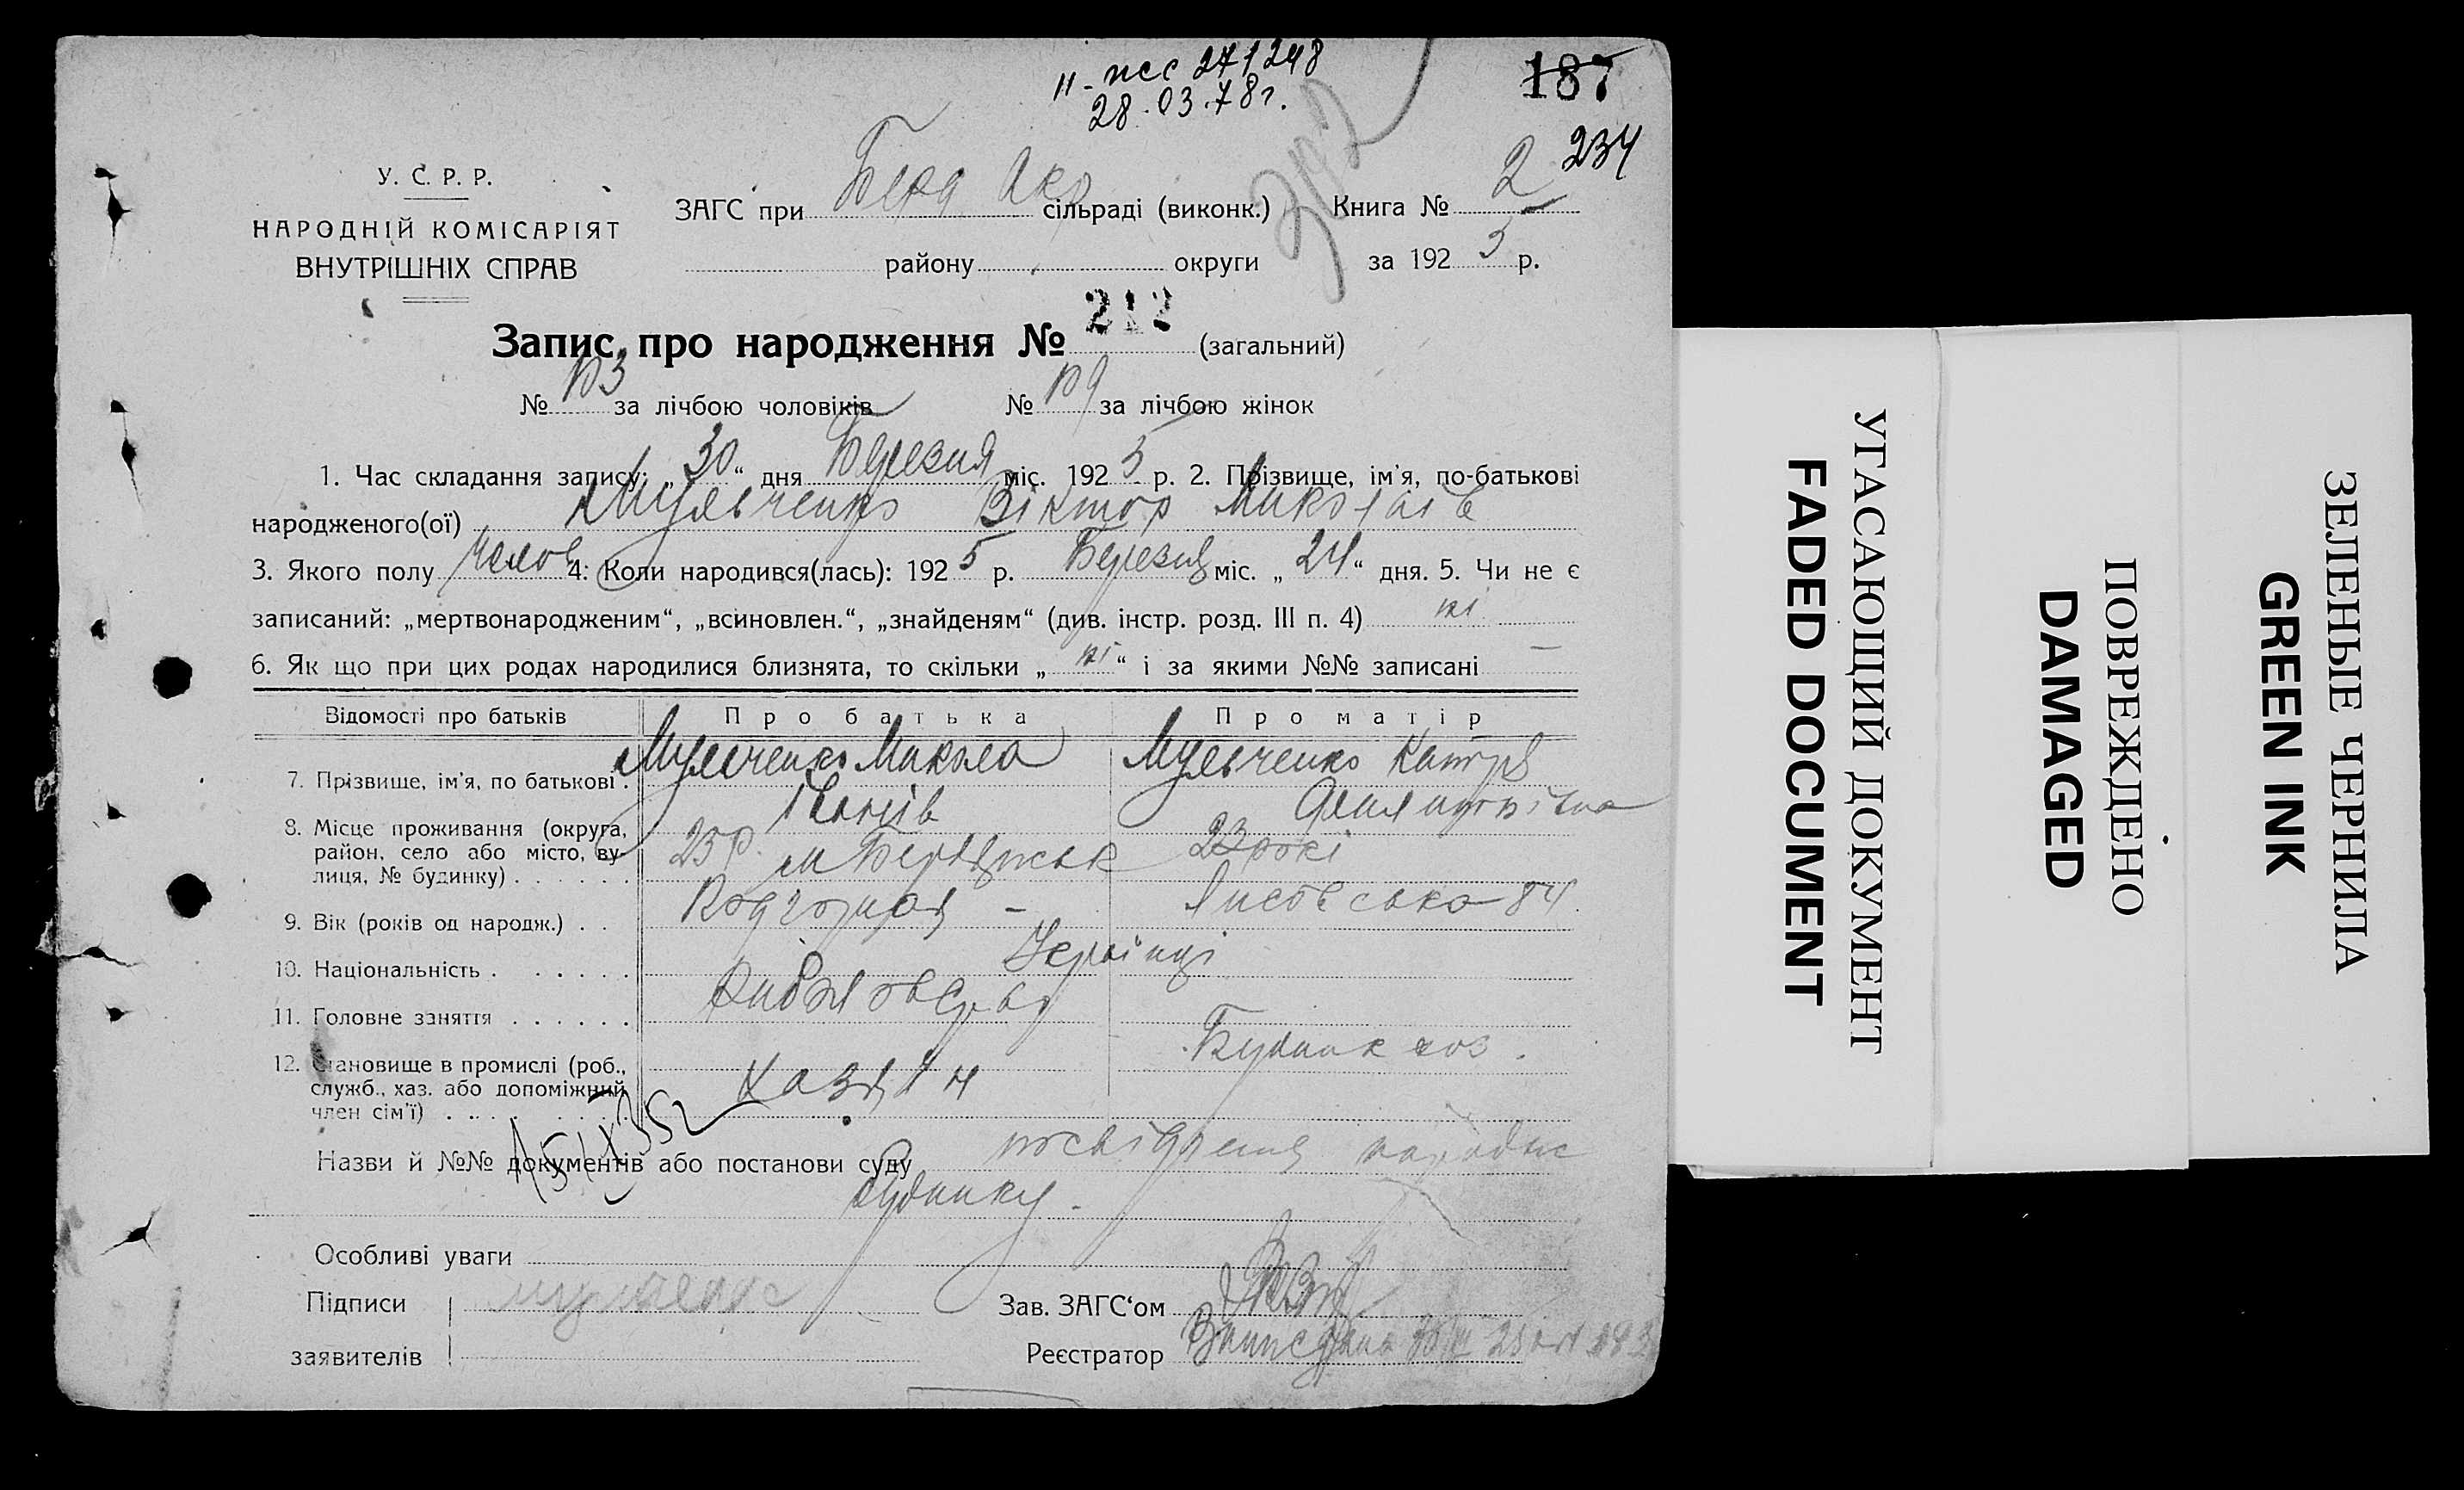 II-ПСС 271248
28.03.78г.
187
234
У. С. Р. Р.
НАРОДНІЙ КОМІСАРІЯТ
ВНУТРІШНІХ СПРАВ
ЗАГС при Берд Окр сільраді (виконк.)
Книга № 2
району округи
за 192 5 р.
Запис про народження № 212 (загальний)
№ 103 за лічбою чоловіків № 109 за лічбою жінок
1. Час складання запису: „ 30 “ дня Березня міс. 192 5 р. 2. Прізвище, ім'я, по-батькові
народженого(ої) Мульченко Віктор Миколаїв
3. Якого полу челов 4. Коли народився(лась): 192 5 р. Березня міс. „ 24 “ дня. 5. Чи не є
записаний: „мертвонародженим“, „всиновлен.“, „знайденям“ (див. інстр. розд. III п. 4) ні
6. Як що при цих родах народилися близнята, то скільки „ ні “ і за якими №№ записані —
Відомості про батьків Про батька Про матір
7. Прізвище, ім'я, по батькові . Мульченко Микола Мульченко Катря
Іванів
8. Місце проживання (округа,
район, село або місто, ву-
лиця, № будинку) . . . . . .
23р. м Бердянськ 23 рокі
9. Вік (років од народж.) . . Подгорная — Лисовсько 84.
10. Національність . . . . . . Українці
11. Головне заняття . . . . . .
Будинк хоз.
12. Становище в промислі (роб.,
служб., хаз. або допоміжний
член сім'ї) . . . . . . .
Хазяїн
Назви й №№ документів або постанови суду посвідчення народнь
будинку.
Особливі уваги
Підписи Мульченко Зав. ЗАГС'ом
заявителів Реєстратор
УГАСАЮЩИЙ ДОКУМЕНТ
FADED DOCUMENT
ПОВРЕЖДЕНО
DAMAGED
ЗЕЛЕНЫЕ ЧЕРНИЛА
GREEN INK